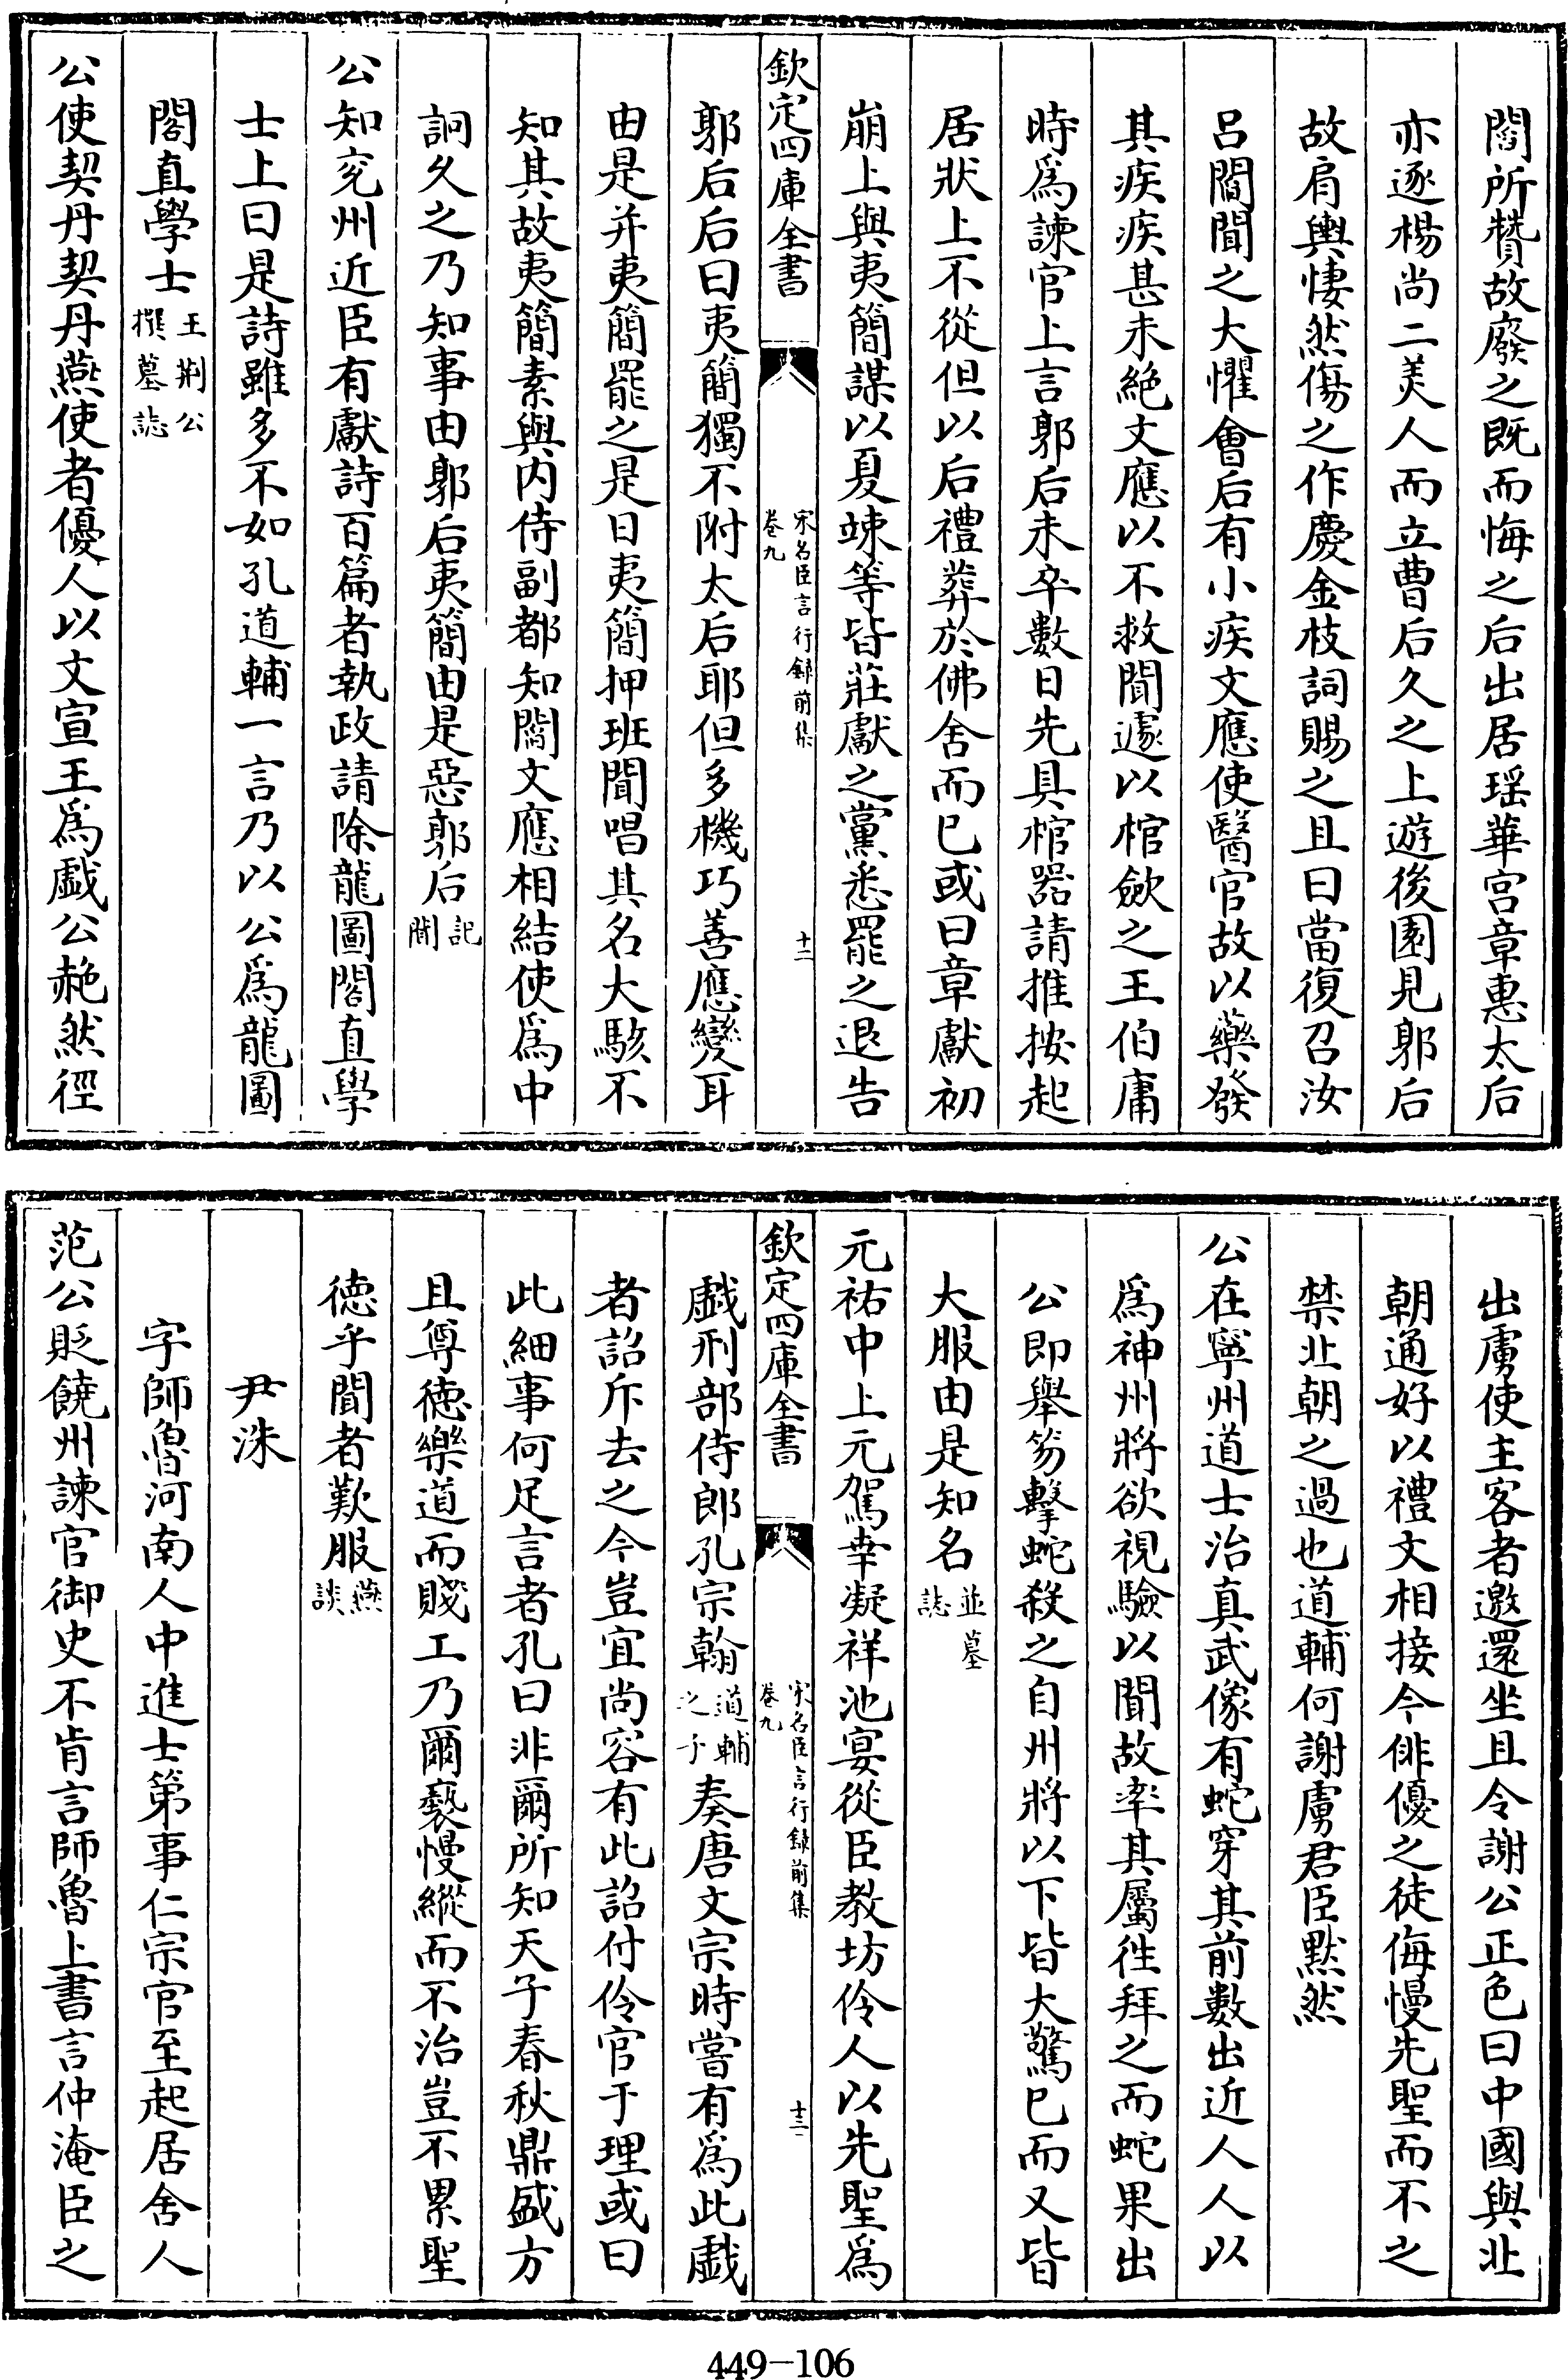 閻所贊故廢之既而悔之后出居瑶華宫章惠太后
亦逐楊尚二美人而立曹后久之上遊後園見郭后
故肩輿悽然傷之作慶金枝詞賜之且曰當復召汝
吕閻聞之大懼會后有小疾文應使醫官故以藥發
其疾疾甚未絶文應以不救聞遽以棺歛之王伯庸
時爲諫官上言郭后未卒數日先具棺器請推按起
居狀上不從但以后禮葬於佛舍而已或曰章獻初
崩上與夷簡謀以夏竦等皆莊獻之黨悉罷之退告
欽定四庫全書
宋名臣言行錄前集
卷九
十二
郭后后曰夷簡獨不附太后耶但多機巧善應變耳
由是并夷簡罷之是日夷簡押班聞唱其名大駭不
知其故夷簡素與内侍副都知閻文應相結使爲中
詗久之乃知事由郭后夷簡由是惡郭后記聞
公知兖州近臣有獻詩百篇者執政請除龍圖閣直學
士上曰是詩雖多不如孔道輔一言乃以公爲龍圖
閣直學士王荆公撰墓誌
公使契丹契丹燕使者優人以文宣王爲戲公艴然徑
出虜使主客者邀還坐且令謝公正色曰中國與北
朝通好以禮文相接今俳優之徒侮慢先聖而不之
禁北朝之過也道輔何謝虜君臣黙然
公在寧州道士治真武像有蛇穿其前數出近人人以
爲神州將欲視驗以聞故率其屬徃拜之而蛇果出
公即舉笏擊蛇殺之自州將以下皆大驚已而又皆
大服由是知名並墓誌
元祐中上元駕幸凝祥池宴從臣教坊伶人以先聖爲
欽定四庫全書
宋名臣言行録前集
卷九
十三
戲刑部侍郎孔宗翰道輔之子奏唐文宗時嘗有爲此戲
者詔斥去之今豈宜尚容有此詔付伶官于理或曰
此細事何足言者孔曰非爾所知天子春秋鼎盛方
且尊徳樂道而賤工乃爾褻慢縱而不治豈不累聖
徳乎聞者歎服燕談
尹洙
字師魯河南人中進士第事仁宗官至起居舍人
范公貶饒州諫官御史不肯言師魯上書言仲淹臣之
449-106